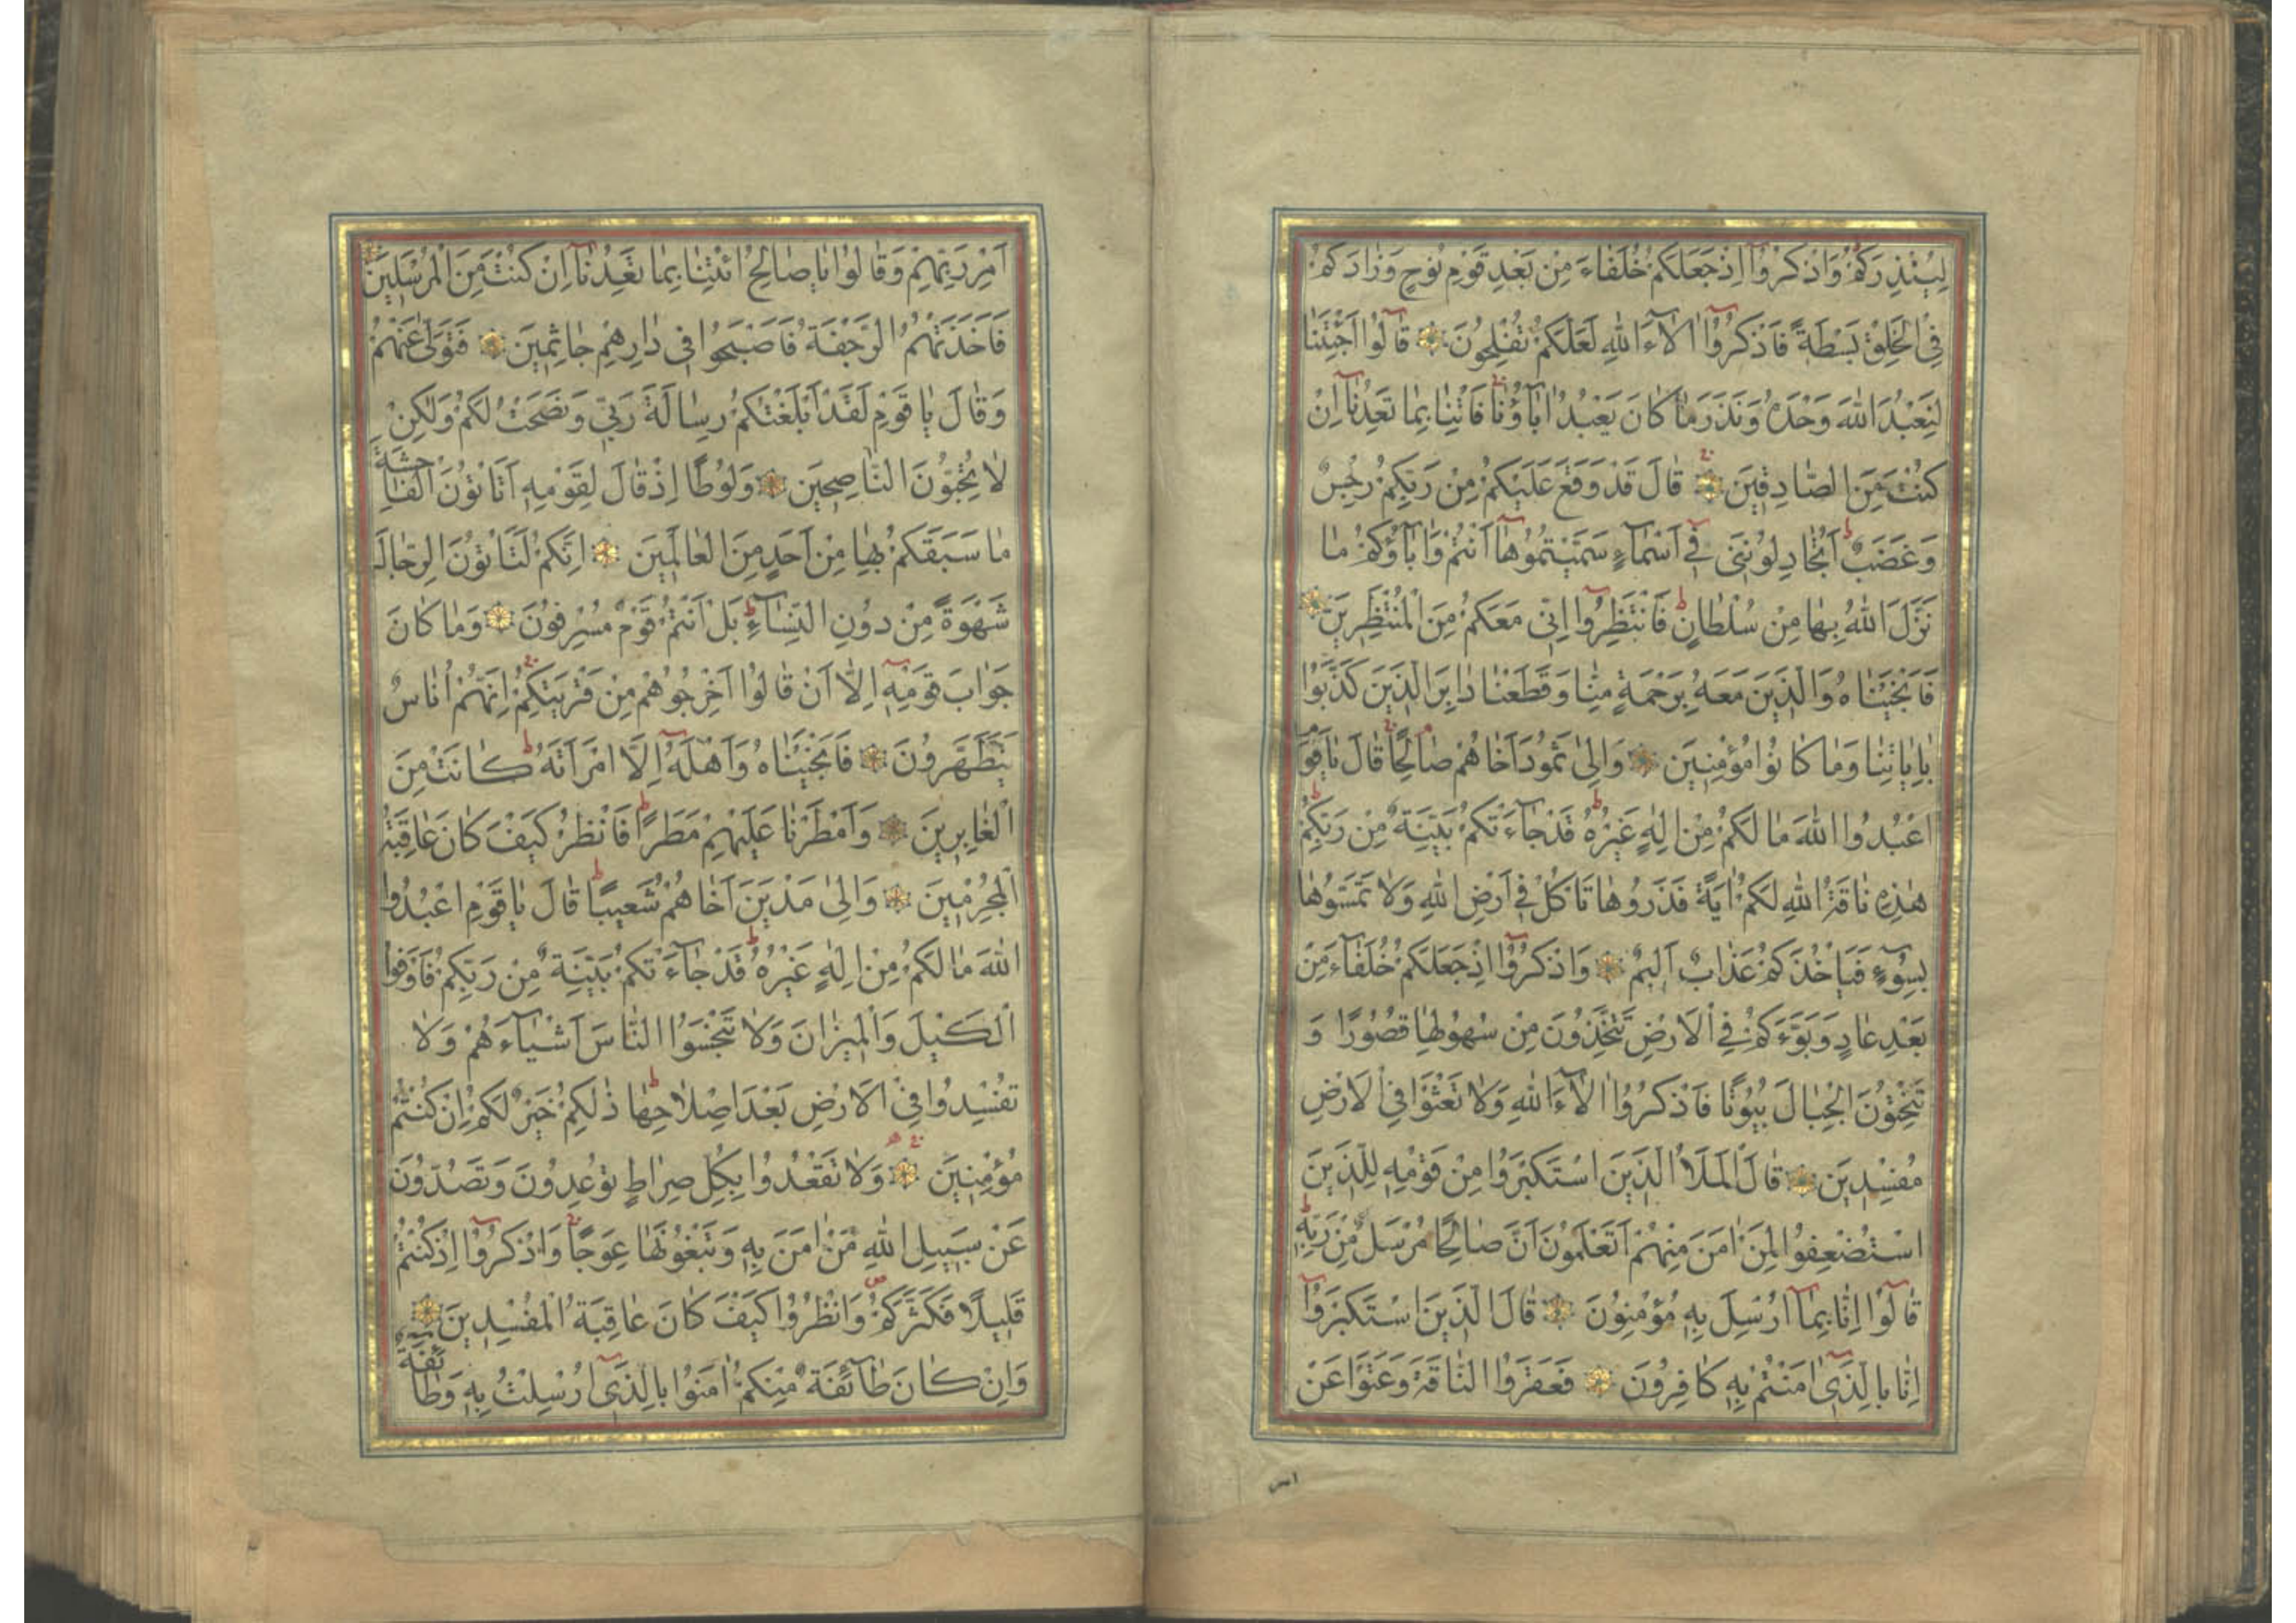 لِيُنْذِرَكُمْ وَاذْكُرُوٓا اِذْ جَعَلَكُمْ خُلَفَٓاءَ مِنْ بَعْدِ قَوْمِ نُوحٍ وَزَادَكُمْ
فِى الْخَلْقِ بَسْطَةً فَاذْكُرُوٓا اٰلَٓاءَ اللّٰهِ لَعَلَّكُمْ تُفْلِحُونَ قَالُوٓا اَجِئْتَنَا
لِنَعْبُدَ اللّٰهَ وَحْدَهُ وَنَذَرَ مَا كَانَ يَعْبُدُ اٰبَٓاؤُنَا فَاْتِنَا بِمَا تَعِدُنَٓا اِنْ
كُنْتَ مِنَ الصَّادِقِينَ قَالَ قَدْ وَقَعَ عَلَيْكُمْ مِنْ رَبِّكُمْ رِجْسٌ
وَغَضَبٌ اَتُجَادِلُونَنِى فِٓى اَسْمَٓاءٍ سَمَّيْتُمُوهَٓا اَنْتُمْ وَاٰبَٓاؤُكُمْ مَا
نَزَّلَ اللّٰهُ بِهَا مِنْ سُلْطَانٍ فَانْتَظِرُوٓا اِنِّى مَعَكُمْ مِنَ الْمُنْتَظِرِينَ
فَاَنْجَيْنَاهُ وَالَّذِينَ مَعَهُ بِرَحْمَةٍ مِنَّا وَقَطَعْنَا دَابِرَ الَّذِينَ كَذَّبُوا
بِاٰيَاتِنَا وَمَا كَانُوا مُؤْمِنِينَ وَاِلٰى ثَمُودَ اَخَاهُمْ صَالِحًا قَالَ يَا قَوْمِ
اعْبُدُوا اللّٰهَ مَا لَكُمْ مِنْ اِلٰهٍ غَيْرُهُ قَدْ جَٓاءَتْكُمْ بَيِّنَةٌ مِنْ رَبِّكُمْ
هٰذِهِ نَاقَةُ اللّٰهِ لَكُمْ اٰيَةً فَذَرُوهَا تَاْكُلْ فِٓى اَرْضِ اللّٰهِ وَلَا تَمَسُّوهَا
بِسُٓوءٍ فَيَاْخُذَكُمْ عَذَابٌ اَلِيمٌ وَاذْكُرُوٓا اِذْ جَعَلَكُمْ خُلَفَٓاءَ مِنْ
بَعْدِ عَادٍ وَبَوَّءَكُمْ فِى الْاَرْضِ تَتَّخِذُونَ مِنْ سُهُولِهَا قُصُورًا وَ
تَنْحِتُونَ الْجِبَالَ بُيُوتًا فَاذْكُرُوٓا اٰلَٓاءَ اللّٰهِ وَلَا تَعْثَوْا فِى الْاَرْضِ
مُفْسِدِينَ قَالَ الْمَلَاُ الَّذِينَ اسْتَكْبَرُوا مِنْ قَوْمِهِ لِلَّذِينَ
اسْتُضْعِفُوا لِمَنْ اٰمَنَ مِنْهُمْ اَتَعْلَمُونَ اَنَّ صَالِحًا مُرْسَلٌ مِنْ رَبِّهِ
قَالُوٓا اِنَّا بِمَٓا اُرْسِلَ بِهِ مُؤْمِنُونَ قَالَ الَّذِينَ اسْتَكْبَرُوٓا
اِنَّا بِالَّذِٓى اٰمَنْتُمْ بِهِ كَافِرُونَ فَعَقَرُوا النَّاقَةَ وَعَتَوْا عَنْ
اَمْرِ رَبِّهِمْ وَقَالُوا يَا صَالِحُ ائْتِنَا بِمَا تَعِدُنَٓا اِنْ كُنْتَ مِنَ الْمُرْسَلِينَ
فَاَخَذَتْهُمُ الرَّجْفَةُ فَاَصْبَحُوا فِى دَارِهِمْ جَاثِمِينَ فَتَوَلّٰى عَنْهُمْ
وَقَالَ يَا قَوْمِ لَقَدْ اَبْلَغْتُكُمْ رِسَالَةَ رَبِّى وَنَصَحْتُ لَكُمْ وَلٰكِنْ
لَا تُحِبُّونَ النَّاصِحِينَ وَلُوطًا اِذْ قَالَ لِقَوْمِهِ اَتَاْتُونَ الْفَاحِشَةَ
مَا سَبَقَكُمْ بِهَا مِنْ اَحَدٍ مِنَ الْعَالَمِينَ اِنَّكُمْ لَتَاْتُونَ الرِّجَالَ
شَهْوَةً مِنْ دُونِ النِّسَٓاءِ بَلْ اَنْتُمْ قَوْمٌ مُسْرِفُونَ وَمَا كَانَ
جَوَابَ قَوْمِهِٓ اِلَّٓا اَنْ قَالُوٓا اَخْرِجُوهُمْ مِنْ قَرْيَتِكُمْ اِنَّهُمْ اُنَاسٌ
يَتَطَهَّرُونَ فَاَنْجَيْنَاهُ وَاَهْلَهُٓ اِلَّا امْرَاَتَهُ كَانَتْ مِنَ
الْغَابِرِينَ وَاَمْطَرْنَا عَلَيْهِمْ مَطَرًا فَانْظُرْ كَيْفَ كَانَ عَاقِبَةُ
الْمُجْرِمِينَ وَاِلٰى مَدْيَنَ اَخَاهُمْ شُعَيْبًا قَالَ يَا قَوْمِ اعْبُدُوا
اللّٰهَ مَا لَكُمْ مِنْ اِلٰهٍ غَيْرُهُ قَدْ جَٓاءَتْكُمْ بَيِّنَةٌ مِنْ رَبِّكُمْ فَاَوْفُوا
الْكَيْلَ وَالْمِيزَانَ وَلَا تَبْخَسُوا النَّاسَ اَشْيَٓاءَهُمْ وَلَا
تُفْسِدُوا فِى الْاَرْضِ بَعْدَ اِصْلَاحِهَا ذٰلِكُمْ خَيْرٌ لَكُمْ اِنْ كُنْتُمْ
مُؤْمِنِينَ وَلَا تَقْعُدُوا بِكُلِّ صِرَاطٍ تُوعِدُونَ وَتَصُدُّونَ
عَنْ سَبِيلِ اللّٰهِ مَنْ اٰمَنَ بِهِ وَتَبْغُونَهَا عِوَجًا وَاذْكُرُوٓا اِذْ كُنْتُمْ
قَلِيلًا فَكَثَّرَكُمْ وَانْظُرُوا كَيْفَ كَانَ عَاقِبَةُ الْمُفْسِدِينَ
وَاِنْ كَانَ طَٓائِفَةٌ مِنْكُمْ اٰمَنُوا بِالَّذِٓى اُرْسِلْتُ بِهِ وَطَٓائِفَةٌ